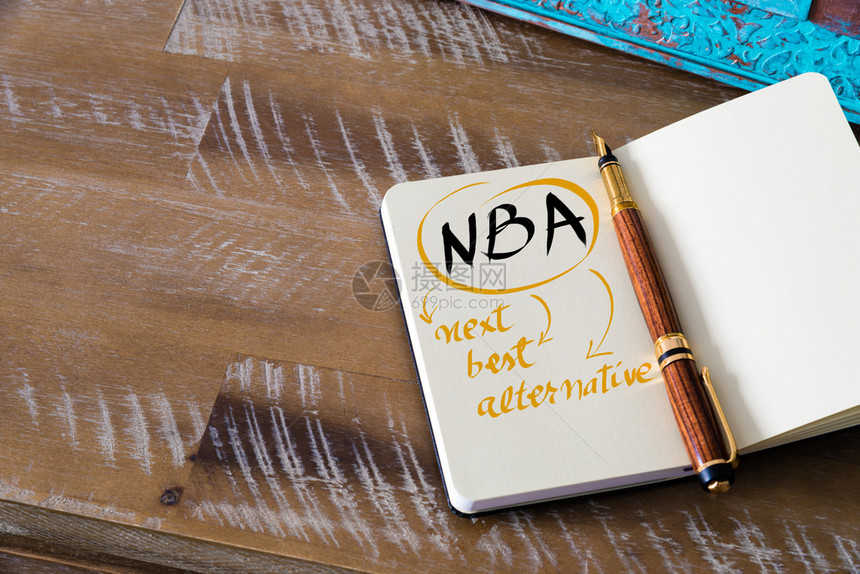 NBA
next
best
alternative
摄图网
699pic.com